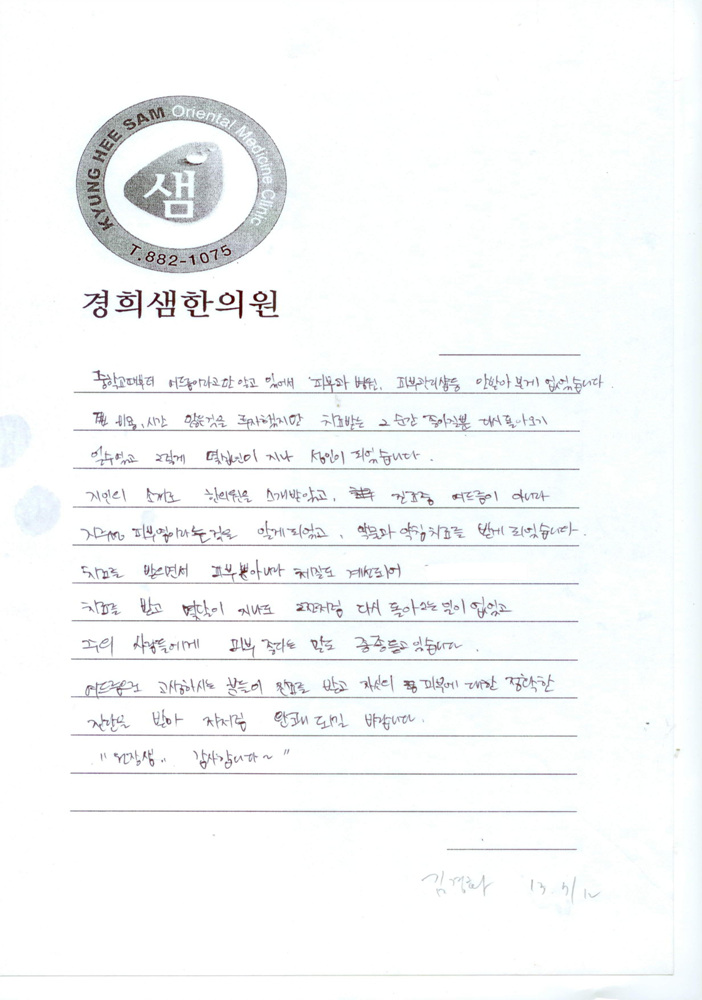 KYUNG HEE SAM Oriental Medicine Clinic
샘
T.882-1075
경희샘한의원
중학교때부터 여드름이라고만 알고 있어서 피부과 병원, 피부관리샵등 안받아 본게 없었습니다.
비용, 시간 많은것을 투자했지만 치료받는 그 순간 좋아질뿐 다시 돌아오기
일수였고 그렇게 몇십년이 지나 성인이 되었습니다.
지인의 소개로 한의원을 소개받았고, 진료중 여드름이 아니라
피부염이라는것을 알게되었고, 약물과 약침치료를 받게 되었습니다.
치료를 받으면서 피부뿐아니라 체질도 개선되어
치료를 받고 몇달이 지나도 예전처럼 다시 돌아오는 일이 없었고
주위 사람들에게 피부 좋다는 말도 종종듣고 있습니다.
여드름으로 고생하시는 분들이 진료를 받고 자신의 피부에 대한 정확한
진단을 받아 저처럼 완쾌 되길 바랍니다.
"원장샘.. 감사합니다~"
김경화 13.